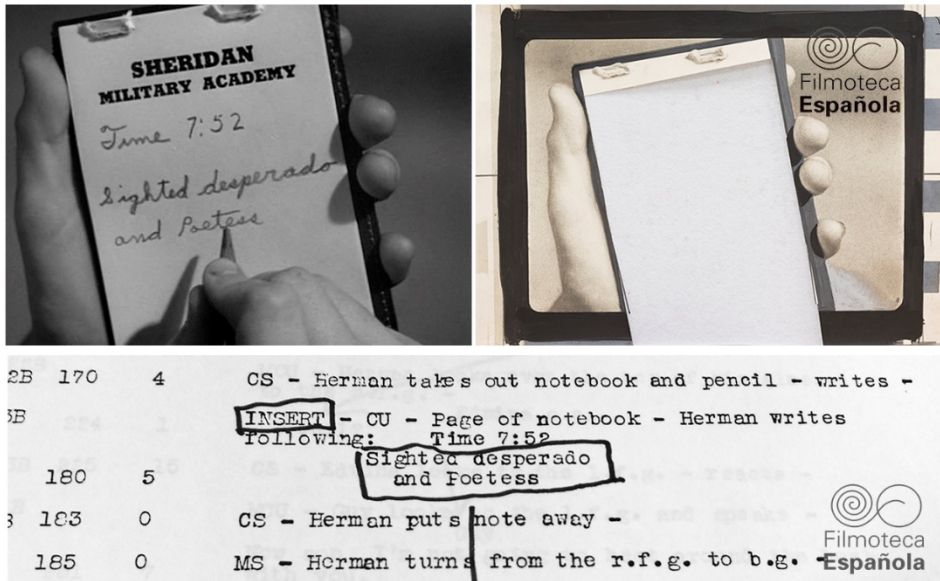 SHERIDAN
MILITARY ACADEMY
Time 7:52
Sighted desperado
and Poetess
Filmoteca
Española
2B 170 4 CS - Herman takes out notebook and pencil - writes -
INSERT - CU - Page of notebook - Herman writes
following: Time 7:52
Sighted desperado
180 5 and Poetess
183 0 CS - Herman puts note away -
185 0 MS - Herman turns from the r.f.g. to b.g. -
Filmoteca
Española